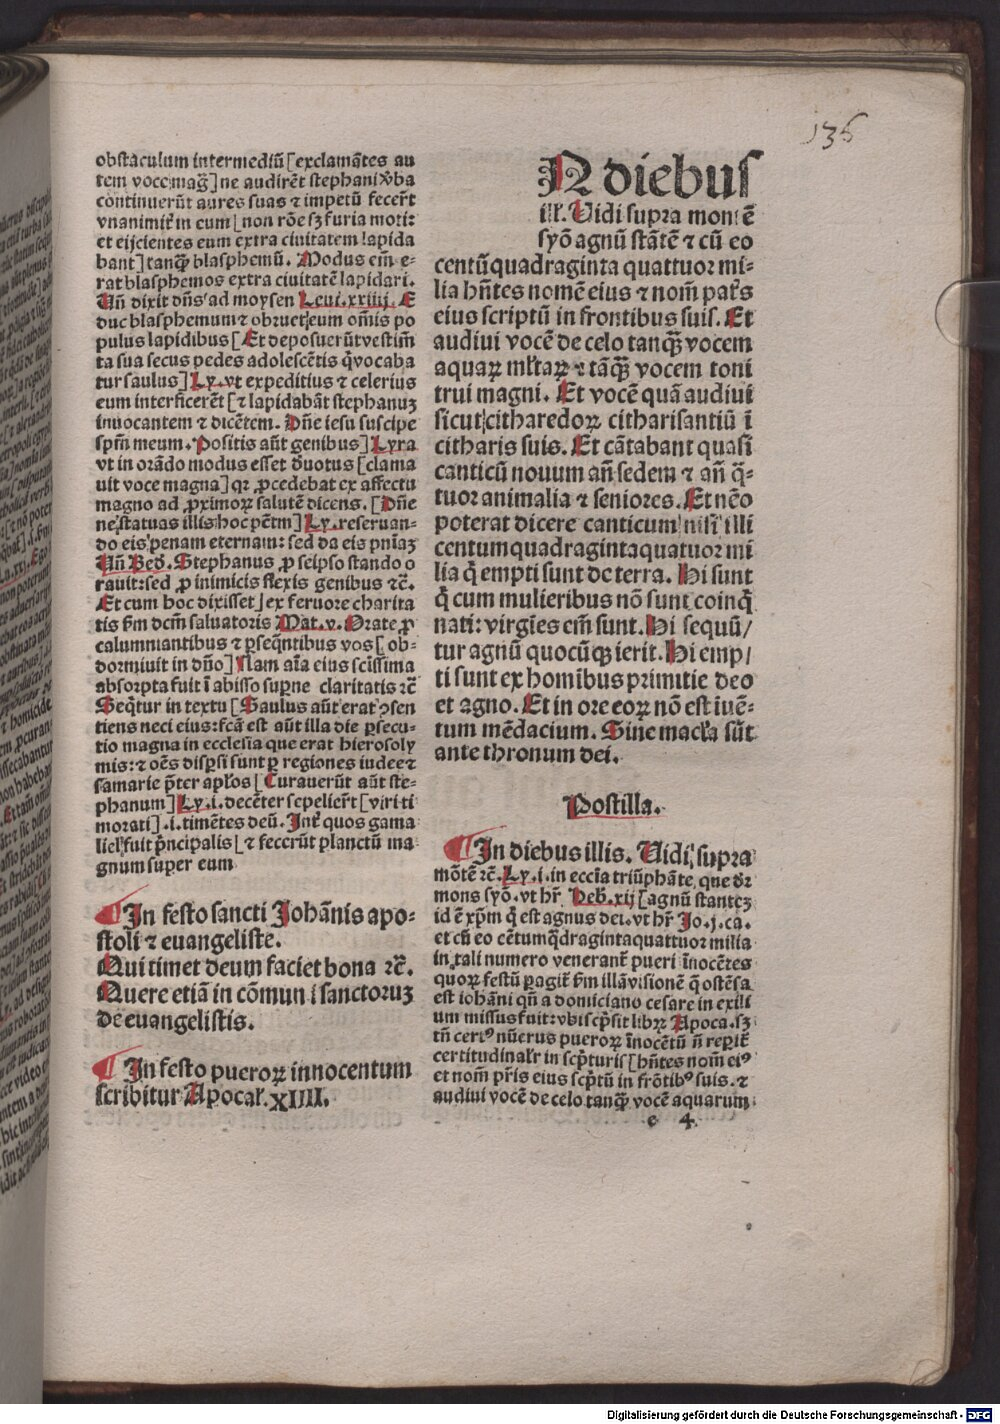 136
obstaculum intermediū [exclamātes au
tem voce mag̃] ne audirēt stephani v̾ba
cōtinuerūt aures suas ⁊ impetū fecer̄t
vnanimit̾ in eum [non rōe sꝫ furia moti:
et eijcientes eum extra ciuitatem lapida
bant] tanq̄ꝫ blasphemū. Modus em̄ e-
rat blasphemos extra ciuitatē lapidari.
Un̄ dixit dn̄s ad moysen Leui.xxiiij. E
duc blasphemum ⁊ obruet eum om̄is po
pulus lapidibus [Et deposuerūt vestim̄
ta sua secus pedes adolescētis q̄ vocaba
tur saulus] Ly. vt expeditius ⁊ celerius
eum interficerēt [⁊ lapidabāt stephanuꝫ
inuocantem ⁊ dicētem. Dn̄e iesu suscipe
spm̄ meum. Positis aūt genibus] Lyra
vt in orādo modus esset d̾uotus [clama
uit voce magna] qꝛ ꝓcedebat ex affectu
magno ad ꝓximoꝝ salutē dicens. [Dn̄e
ne statuas illis hoc pctm̄] Ly. reseruan-
do eis penam eternam: sed da eis pn̄iaꝫ
Un̄ Bed. Stephanus ꝓ seipso stando o
rauit: sed ꝓ inimicis flexis genibus ⁊c̄.
Et cum hoc dixisset] ex feruore charita
tis s̄m dcm̄ saluatoris Mat.v. Orate ꝓ
calumniantibus ⁊ ꝑseq̄ntibus vos [ob-
dormiuit in dn̄o] Nam aīa eius scīssima
absorpta fuit ī abisso sup̄ne claritatis ⁊c̄
Seq̄tur in textu [Saulus aūt erat ꝯsen
tiens neci eius: fcā est aūt illa die ꝑsecu-
tio magna in ecclesia que erat hierosoly
mis: ⁊ oēs disꝑsi sunt ꝑ regiones iudee ⁊
samarie p̄ter apl̄os [Curauerūt aūt ste-
phanum] Ly.i. decēter sepelier̄t [viri ti
morati] .i. timētes deū. Int̾ quos gama
liel fuit p̄ncipalis [⁊ fecerūt planctū ma
gnum super eum
¶ In festo sancti Johānis apo-
stoli ⁊ euangeliste.
Qui timet deum faciet bona ⁊c̄.
Quere etiā in cōmuni sanctoruꝫ
de euangelistis.
¶ In festo pueroꝝ innocentum
scribitur Apocal̾.XIIII.
IN diebus
ill̾. Uidi supra montē
syō agnū stātē ⁊ cū eo
centū quadraginta quattuor mi-
lia hn̄tes nomē eius ⁊ nom̄ pat̾s
eius scriptū in frontibus suis. Et
audiui vocē de celo tanq̄ꝫ vocem
aquaꝝ ml̾taꝝ ⁊ tāq̄ꝫ vocem toni
trui magni. Et vocē quā audiui
sicut citharedoꝝ citharisantiū ī
citharis suis. Et cātabant quasi
canticū nouum an̄ sedem ⁊ an̄ q̄-
tuor animalia ⁊ seniores. Et nēo
poterat dicere canticum nisi illi
centumquadragintaquatuor mi
lia q̄ empti sunt de terra. Hi sunt
q̄ cum mulieribus nō sunt coinq̄
nati: virgīes em̄ sunt. Hi sequū/
tur agnū quocūqꝫ ierit. Hi emp/
ti sunt ex homībus primitie deo
et agno. Et in ore eoꝝ nō est iuē-
tum mēdacium. Sine macl̾a sūt
ante thronum dei.
Postilla.
¶ In diebus illis. Uidi supra
mōtē ⁊c̄. Ly.i. in eccīa triūphāte, que dr̄
mons syō. vt hr̄. Heb̾.xij [agnū stanteꝫ
id ē xp̄m q̄ est agnus dei. vt hr̄ Jo.j.ca.
et cū eo cētumq̄dragintaquattuor milia
in tali numero venerant̾ pueri īnocētes
quoꝝ festū ꝑagit̾ s̄m illā visionē q̄ ostēsa
est iohāni qn̄ a domiciano cesare in exili
um missus fuit: vbi scp̄sit libꝝ Apoca. sꝫ
tn̄ cerꝰ nūerus pueroꝝ īnocētū n̄ reꝑit̾
certitudinal̾r in scp̄turis [hn̄tes nom̄ eiꝰ
et nom̄ pr̄is eius scp̄tū in frōtibꝰ suis. ⁊
audiui vocē de celo tanq̄ꝫ vocē aquarum
e 4
Digitalisierung gefördert durch die Deutsche Forschungsgemeinschaft - DFG